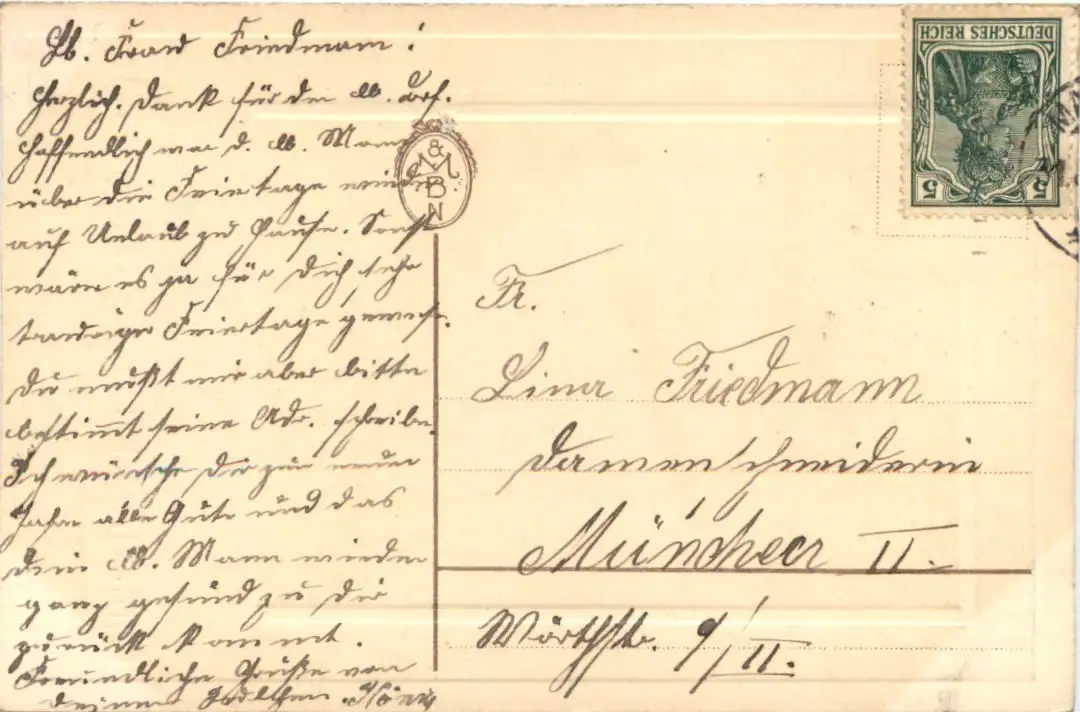 Lb. Frau Friedmann!
Herzlich. Dank für den lb. Brf.
Hoffendlich war d. lb. Mann
über die Feiertage wieder
auf Urlaub zu Hause. Sonst
wären es ja für Dich sehr
traurige Feiertage gewese.
Du mußt mir aber bitte
bestimmt seine Adr. schreibe.
Ich wünsche Dir zum neuen
Jahre alles Gute und das
Dein lb. Mann wieder
ganz gesund zu Dir
zurück kommt.
Freundliche Grüße von
Deiner
&
B
N
DEUTSCHES REICH
5 5
Fr.
Lina Friedmann
Damenschneiderin
München II.
Wörthstr. 9/II.